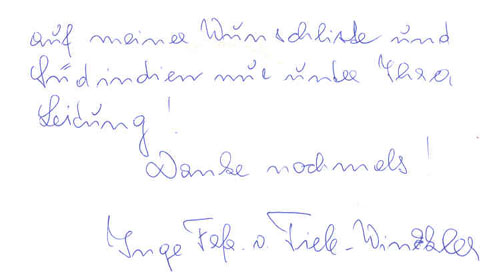 auf meiner Wunschliste und
Südindien nur unter Ihrer
Leitung!
Danke nochmals!
Inge Frfr. v. Tiele-Winckler